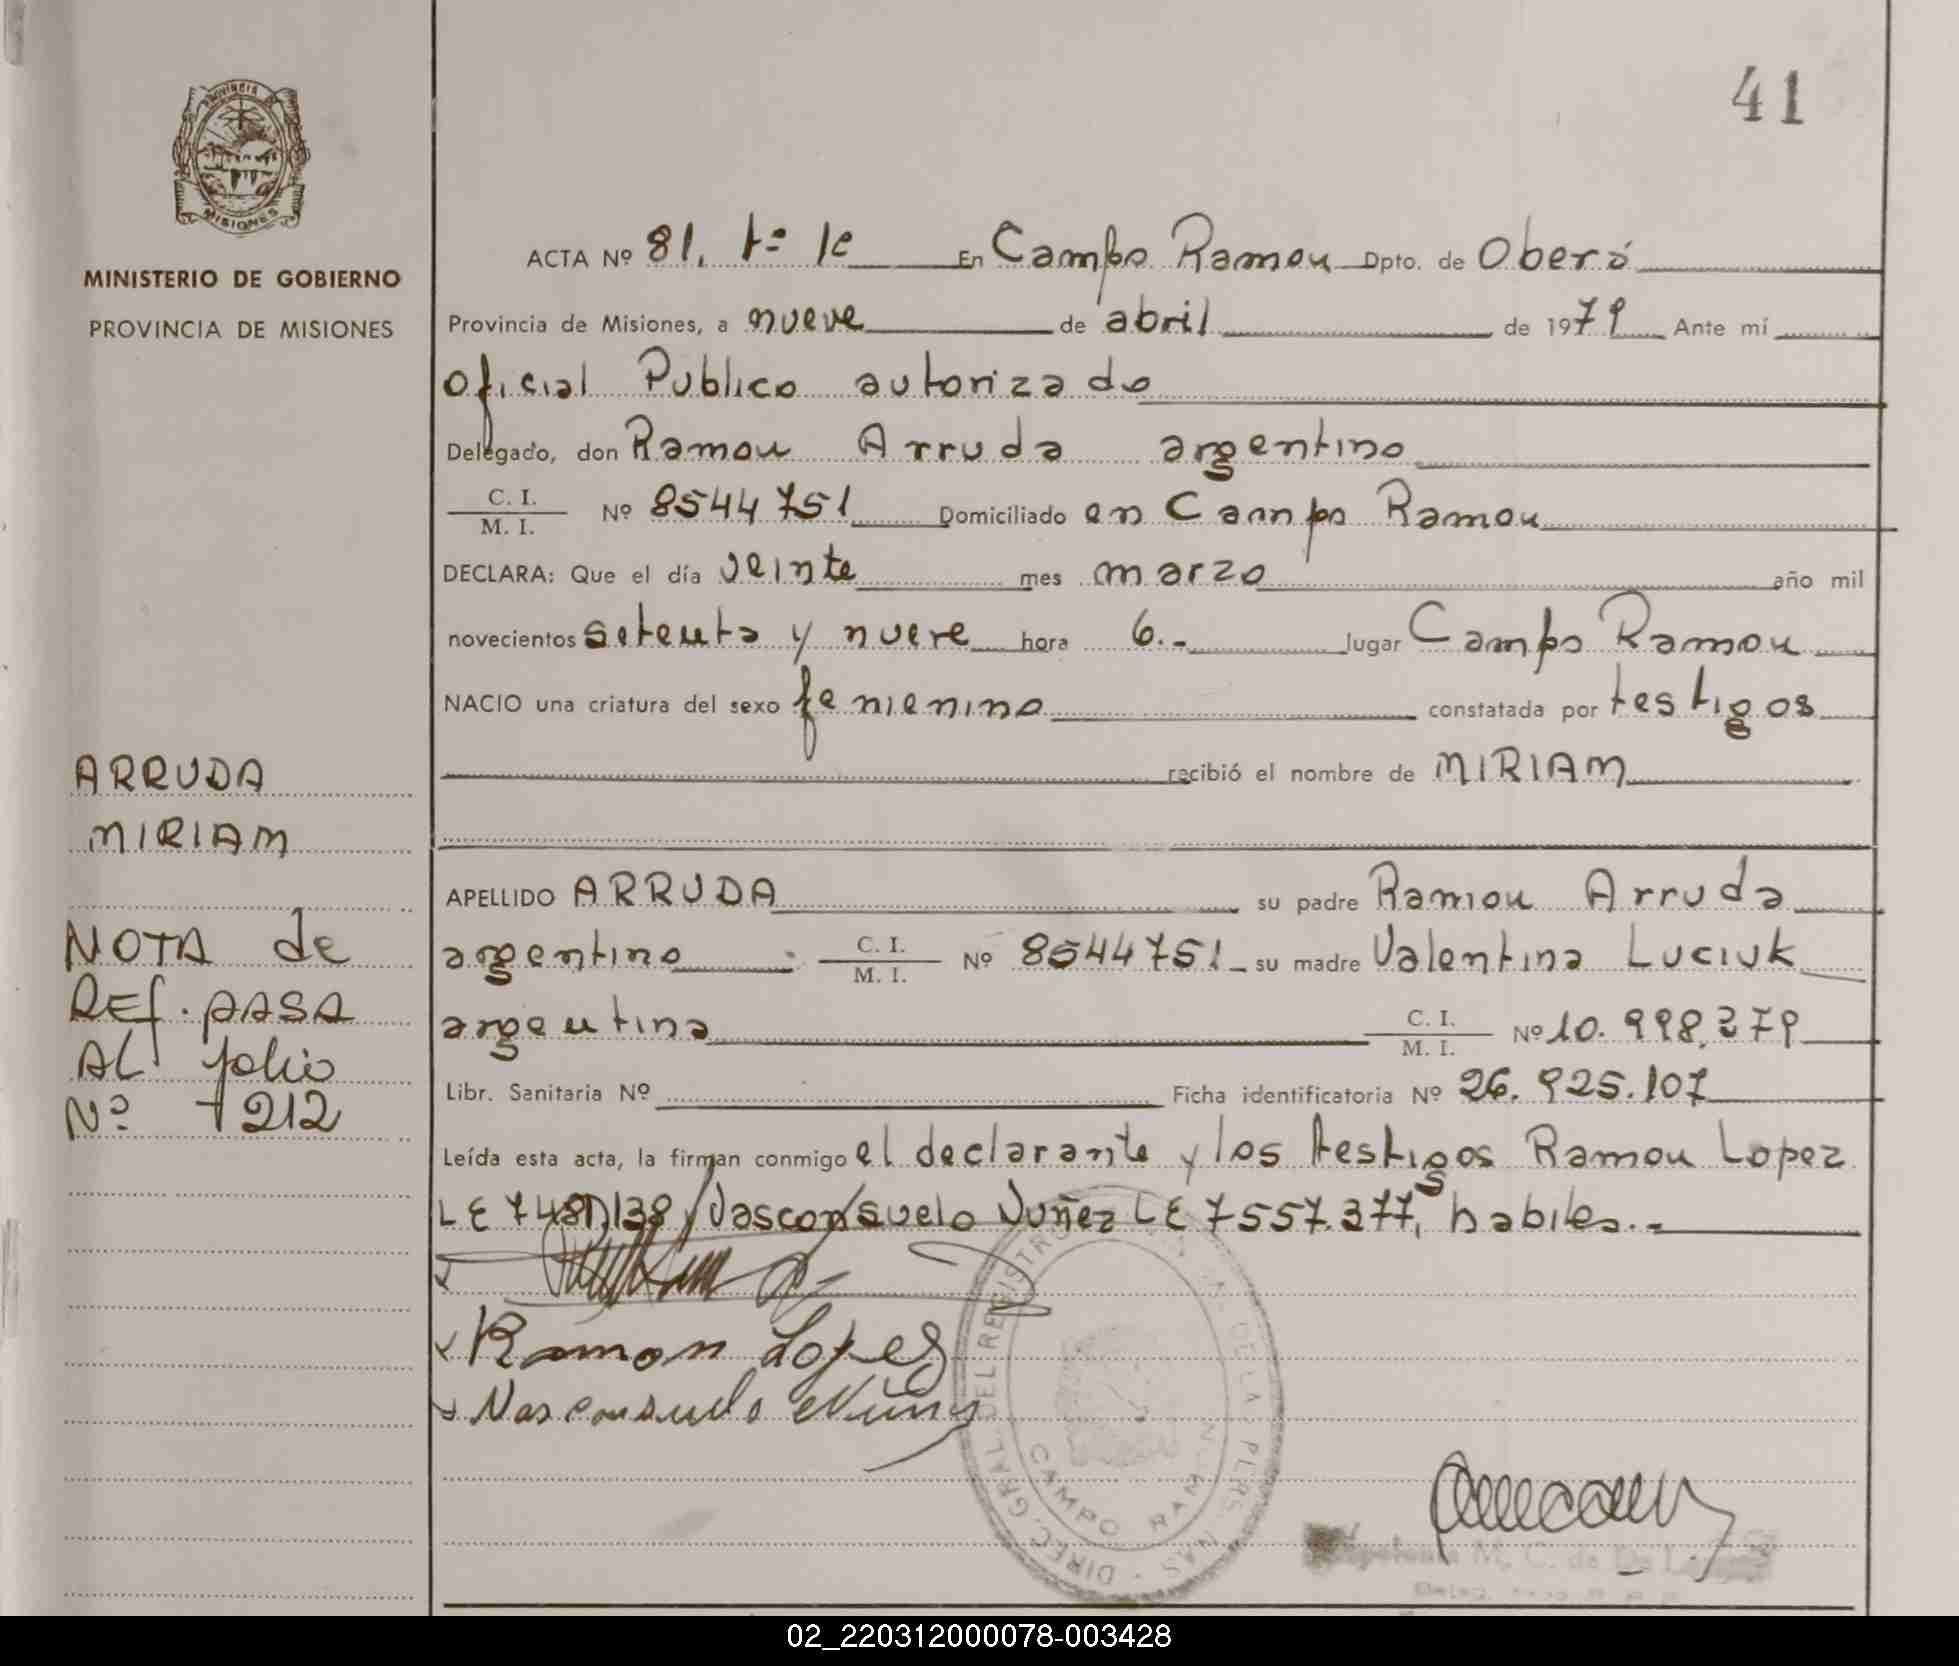 41
PROVINCIA DE
MISIONES
MINISTERIO DE GOBIERNO
PROVINCIA DE MISIONES
ACTA Nº 81. tº 1º En Campo Ramon Dpto. de Oberá
Provincia de Misiones, a nueve de abril de 1979 Ante mí
Oficial Publico autorizado
Delegado, don Ramon Arruda argentino
C. I.
M. I. Nº 8544751 Domiciliado en Campo Ramon
DECLARA: Que el día veinte mes marzo año mil
novecientos setenta y nueve hora 6.- lugar Campo Ramon
NACIO una criatura del sexo femenino constatada por testigos
recibió el nombre de MIRIAM
ARRUDA
MIRIAM
APELLIDO ARRUDA su padre Ramon Arruda
argentino C. I.
M. I. Nº 8544751 su madre Valentina Luciuk
argentina C. I.
M. I. Nº 10.998.279
Libr. Sanitaria Nº Ficha identificatoria Nº 26.925.107
Leída esta acta, la firman conmigo el declarante y los testigos Ramon Lopez
LE 7481138 / Vasconsuelo Nuñez LE 7557.377, habiles.-
NOTA de
REf. PASA
AL folio
Nº 212
Ramon Lopez
Vasconsuelo Nuñez
DIREC. GRAL. DEL REGISTRO DE LAS PERSONAS
CAMPO RAMON
M. C. de De
02_220312000078-003428